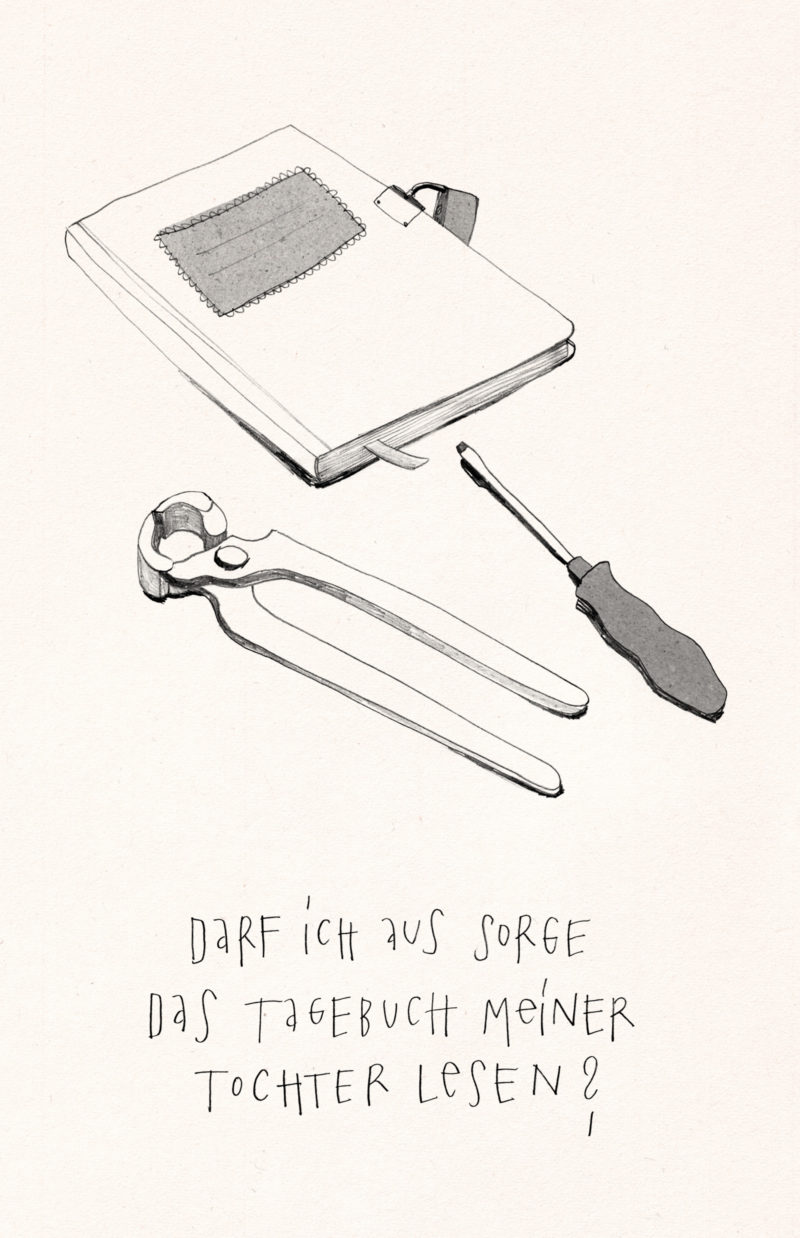 Darf ich aus Sorge
das Tagebuch meiner
Tochter lesen?